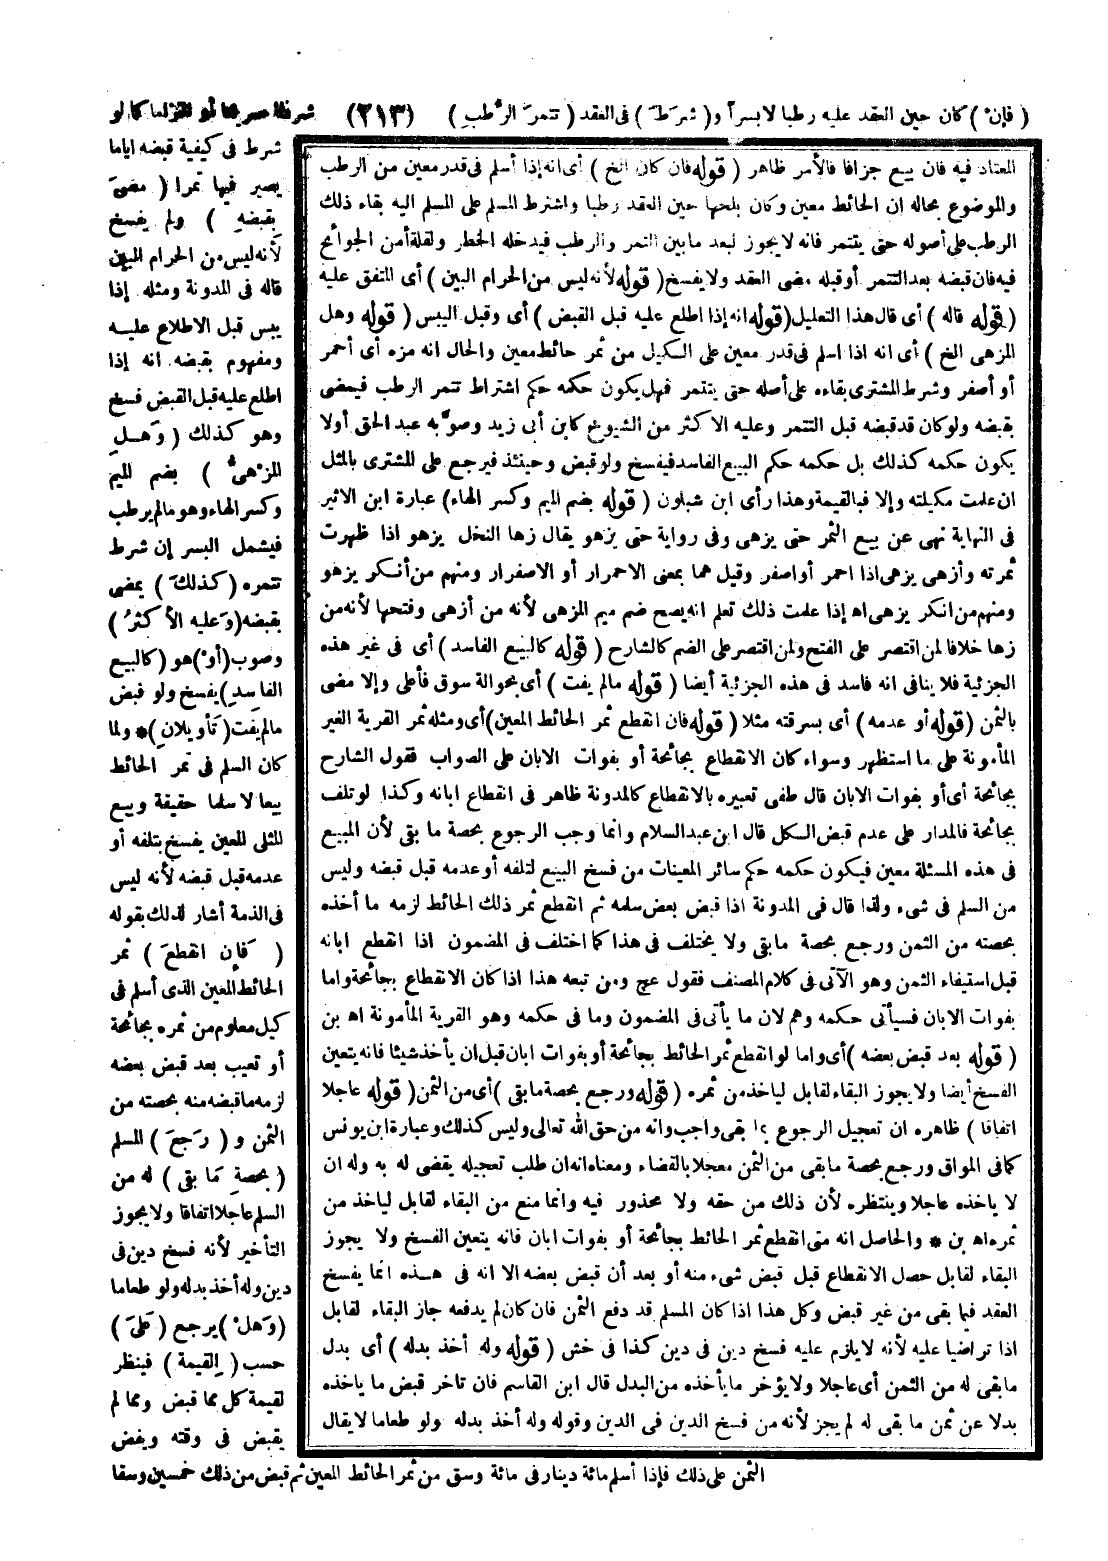 ( فإن ) كان حين العقد عليه رطبا لا بسرا و ( شرط ) فى العقد ( تتمر الرطب ) (٢١٣) شرطا صريحا أو التزاما كما لو
شرط فى كيفية قبضه اياما
يصير فيها تمرا ( مضى
بقبضه ) ولم يفسخ
لأنه ليس من الحرام البين
قاله فى المدونة ومثله إذا
يبس قبل الاطلاع عليه
ومفهوم بقبضه انه إذا
اطلع عليه قبل القبض فسخ
وهو كذلك ( وهل
المزهى ) بضم الميم
وكسر الهاء وهو مالم يرطب
فيشمل البسر إن شرط
تتمره ( كذلك ) يمضى
بقبضه ( وعليه الأكثر )
وصوب ( أو ) هو ( كالبيع
الفاسد ) يفسخ ولو قبض
مالم يفت ( تأويلان ) * ولما
كان السلم فى ثمر الحائط
بيعا لا سلما حقيقة وبيع
المثلى المعين يفسخ بتلفه أو
عدمه قبل قبضه لأنه ليس
فى الذمة أشار لذلك بقوله
( فإن انقطع ) ثمر
الحائط المعين الذى أسلم فى
كيل معلوم من ثمره بجائحة
أو تعيب بعد قبض بعضه
لزمه ما قبضه منه بحصته من
الثمن و ( رجع ) المسلم
( بحصة ما بقى ) له من
السلم عاجلا اتفاقا ولا يجوز
التأخير لأنه فسخ دين فى
دين وله أخذ بدله ولو طعاما
( وهل ) يرجع ( على )
حسب ( القيمة ) فينظر
لقيمة كل مما قبض ومما لم
يقبض فى وقته ويفض
الثمن على ذلك فإذا أسلم مائة دينار فى مائة وسق من ثمر الحائط المعين ثم قبض من ذلك خمسين وسقا
المعتاد فيه فان بيع جزافا فالأمر ظاهر ( قوله فان كان الخ ) أى انه إذا أسلم فى قدر معين من الرطب
والموضوع بحاله ان الحائط معين وكان بلحها حين العقد رطبا واشترط المسلم على المسلم اليه بقاء ذلك
الرطب على أصوله حتى يتتمر فانه لا يجوز لبعد ما بين التمر والرطب فيدخله الخطر ولقلة أمن الجوائح
فيه فان قبضه بعد التتمر أو قبله مضى العقد ولا يفسخ ( قوله لأنه ليس من الحرام البين ) أى المتفق عليه
( قوله قاله ) أى قال هذا التعليل ( قوله انه إذا اطلع عليه قبل القبض ) أى وقبل اليبس ( قوله وهل
المزهى الخ ) أى انه اذا اسلم فى قدر معين على الكيل من ثمر حائط معين والحال انه مزه أى أحمر
أو أصفر وشرط المشترى بقاءه على أصله حتى يتتمر فهل يكون حكمه حكم اشتراط تتمر الرطب فيمضى
بقبضه ولو كان قد قبضه قبل التتمر وعليه الاكثر من الشيوخ كابن أبى زيد وصوبه عبد الحق أولا
يكون حكمه كذلك بل حكمه حكم البيع الفاسد فيفسخ ولو قبض وحينئذ فيرجع على المشترى بالمثل
ان علمت مكيلته وإلا فبالقيمة وهذا رأى ابن شبلون ( قوله بضم الميم وكسر الهاء ) عبارة ابن الاثير
فى النهاية نهى عن بيع الثمر حتى يزهى وفى رواية حتى يزهو يقال زها النخل يزهو اذا ظهرت
ثمرته وأزهى يزهى اذا احمر أو اصفر وقيل هما بمعنى الاحمرار أو الاصفرار ومنهم من أنكر يزهو
ومنهم من انكر يزهى اه إذا علمت ذلك تعلم انه يصح ضم ميم المزهى لأنه من أزهى وفتحها لأنه من
زها خلافا لمن اقتصر على الفتح ولمن اقتصر على الضم كالشارح ( قوله كالبيع الفاسد ) أى فى غير هذه
الجزئية فلا ينافى انه فاسد فى هذه الجزئية أيضا ( قوله مالم يفت ) أى بحوالة سوق فأعلى وإلا مضى
بالثمن ( قوله أو عدمه ) أى بسرقته مثلا ( قوله فان انقطع ثمر الحائط المعين ) أى ومثله ثمر القرية الغير
المأمونة على ما استظهر وسواء كان الانقطاع بجائحة أو بفوات الابان على الصواب فقول الشارح
بجائحة أى أو بفوات الابان قال طفى تعبيره بالانقطاع كالمدونة ظاهر فى انقطاع ابانه وكذا لو تلف
بجائحة فالمدار على عدم قبض الكل قال ابن عبد السلام وانما وجب الرجوع بحصة ما بقى لأن المبيع
فى هذه المسئلة معين فيكون حكمه حكم سائر المعينات من فسخ البيع لتلفه أو عدمه قبل قبضه وليس
من السلم فى شىء ولذا قال فى المدونة اذا قبض بعض سلمه ثم انقطع ثمر ذلك الحائط لزمه ما أخذه
بحصته من الثمن ورجع بحصة ما بقى ولا يختلف فى هذا كما اختلف فى المضمون اذا انقطع ابانه
قبل استيفاء الثمن وهو الآتى فى كلام المصنف فقول عج ومن تبعه هذا اذا كان الانقطاع بجائحة واما
بفوات الابان فسيأتى حكمه وهم لان ما يأتى فى المضمون وما فى حكمه وهو القرية المأمونة اه بن
( قوله بعد قبض بعضه ) أى واما لو انقطع ثمر الحائط بجائحة أو بفوات ابان قبل ان يأخذ شيئا فانه يتعين
الفسخ أيضا ولا يجوز البقاء لقابل لياخذ من ثمره ( قوله ورجع بحصة ما بقى ) أى من الثمن ( قوله عاجلا
اتفاقا ) ظاهره ان تعجيل الرجوع بما بقى واجب وانه من حق الله تعالى وليس كذلك وعبارة ابن يونس
كما فى المواق ورجع بحصة ما بقى من الثمن معجلا بالقضاء ومعناه انه ان طلب تعجيله يقضى له به وله ان
لا ياخذه عاجلا وينتظره لأن ذلك من حقه ولا محذور فيه وانما منع من البقاء لقابل لياخذ من
ثمره اه بن * والحاصل انه متى انقطع ثمر الحائط بجائحة أو بفوات ابان فانه يتعين الفسخ ولا يجوز
البقاء لقابل حصل الانقطاع قبل قبض شىء منه أو بعد أن قبض بعضه الا انه فى هذه انما يفسخ
العقد فيما بقى من غير قبض وكل هذا اذا كان المسلم قد دفع الثمن فان كان لم يدفعه جاز البقاء لقابل
اذا تراضيا عليه لأنه لا يلزم عليه فسخ دين فى دين كذا فى خش ( قوله وله أخذ بدله ) أى بدل
ما بقى له من الثمن أى عاجلا ولا يؤخر ما يأخذه من البدل قال ابن القاسم فان تاخر قبض ما ياخذه
بدلا عن ثمن ما بقى له لم يجز لأنه من فسخ الدين فى الدين وقوله وله أخذ بدله ولو طعاما لا يقال